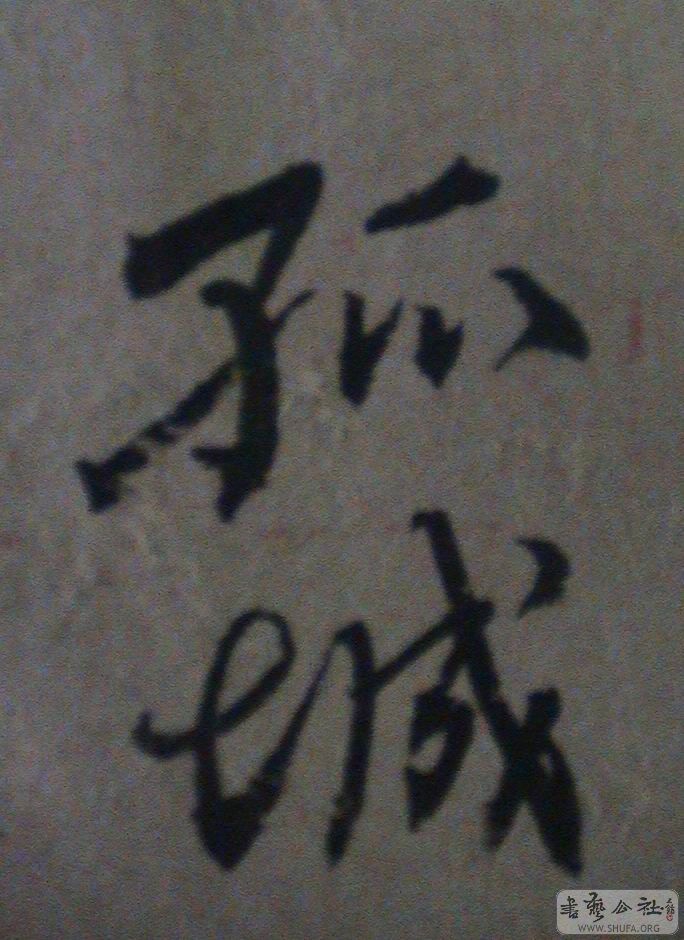 孤
城
書藝公社
WWW.SHUFA.ORG